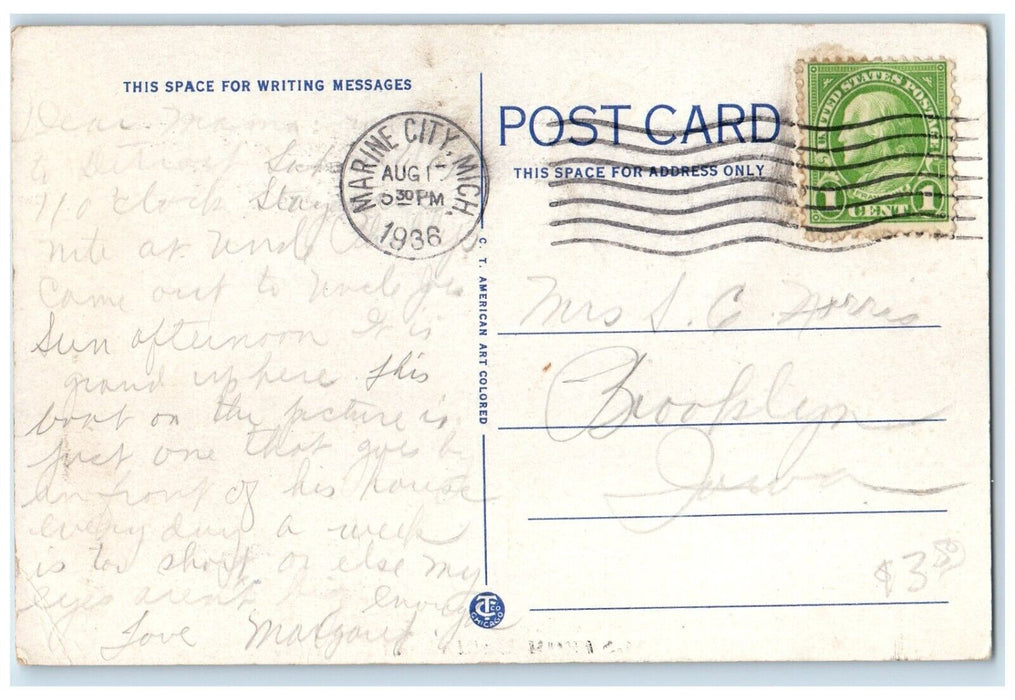 THIS SPACE FOR WRITING MESSAGES
Dear Mama
to Detroit
11 o clock Stay
nite at Uncle
Came out to Uncle
Sun afternoon It is
grand up here this
boat on the picture is
just one that goes by
in front of his house
every day a week
is too short or else my
eyes aren't big enough
Love Margaret
MARINE CITY, MICH.
AUG 1
30 PM
1936
C. T. AMERICAN ART COLORED
CT CO CHICAGO
POST CARD
THIS SPACE FOR ADDRESS ONLY
UNITED STATES POSTAGE
1 CENT 1
Mrs S. C. Norris
Brooklyn
Iowa
$3.50